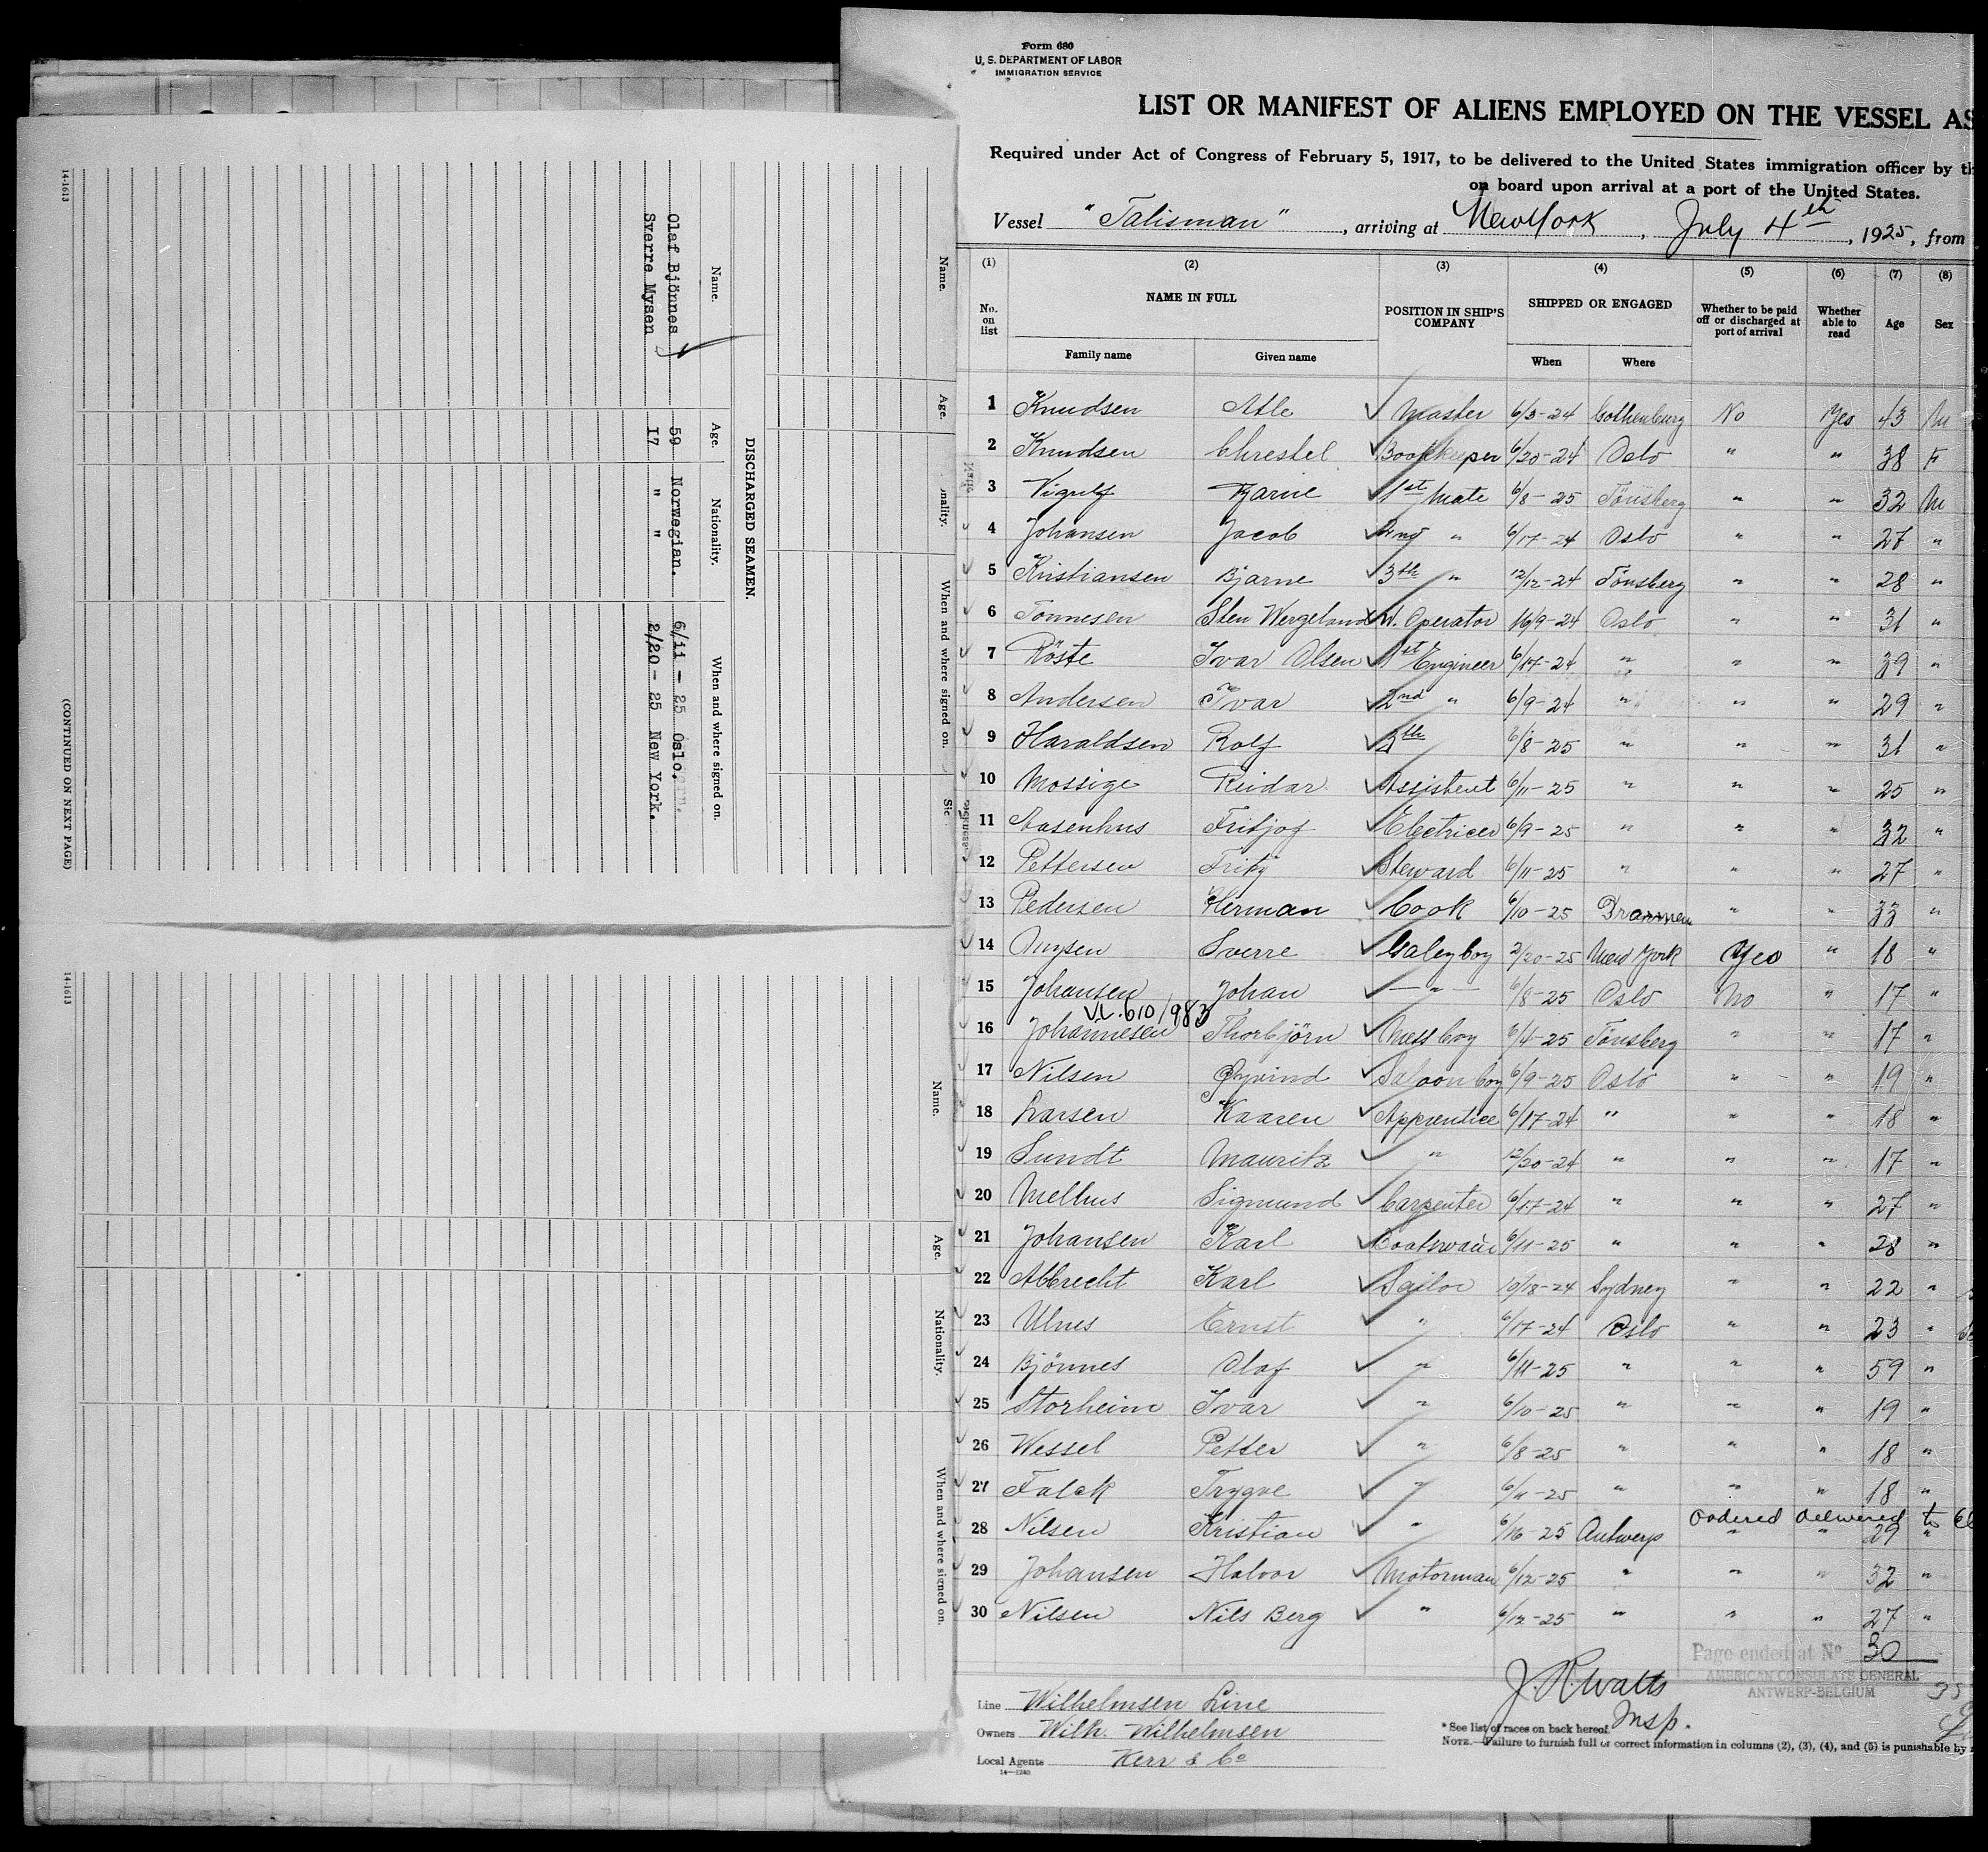 Form 680
U. S. DEPARTMENT OF LABOR
IMMIGRATION SERVICE
LIST OR MANIFEST OF ALIENS EMPLOYED ON THE VESSEL AS
Required under Act of Congress of February 5, 1917, to be delivered to the United States immigration officer by th
on board upon arrival at a port of the United States.
Vessel "Talisman", arriving at New York, July 4th, 1925, from
(1) (2) (3) (4) (5) (6) (7) (8)
No. on list NAME IN FULL POSITION IN SHIP'S COMPANY SHIPPED OR ENGAGED Whether to be paid off or discharged at port of arrival Whether able to read Age Sex
Family name Given name When Where
1 Knudsen Atle Master 6/3-24 Gothenburg No Yes 43 M
2 Knudsen Chrestel Bookkeeper 6/20-24 Oslo " " 38 F
3 Bjarne 1st Mate 6/8-25 Tönsberg " " 32 M
4 Johansen Jacob 2nd " 6/17-24 Oslo " " 27 "
5 Kristiansen Bjarne 3th " 12/12-24 Tönsberg " " 28 "
6 Tonnesen Sten Wergeland W. Operator Oslo " " 31 "
7 Röste Ivar Olsen 1st Engineer 6/17-24 " " " 39 "
8 Andersen Ivar 2nd " 6/9-24 " " " 29 "
9 Haraldsen Rolf 3th 6/8-25 " " " 31 "
10 Mossige Reidar Assistent 6/11-25 " " " 25 "
11 Aasenhus Fritjof Electricer 6/9-25 " " " 32 "
12 Pettersen Steward 6/11-25 " " " 27 "
13 Pedersen Herman Cook 6/10-25 Drammen " " 33 "
14 Sverre Galeyboy 2/20-25 New York Yes " 18 "
15 Johansen Johan -"- 6/8-25 Oslo No " 17 "
VL. 610/983
16 Johannesen Thorbjörn Messboy 6/4-25 Tönsberg " " 17 "
17 Nilsen Øyvind Saloonboy 6/9-25 Oslo " " 19 "
18 Larsen Kaaren Apprentice 6/17-24 " " " 18 "
19 Sundt Mauritz " 12/20-24 " " " 17 "
20 Melhus Sigmund Carpenter 6/17-24 " " " 27 "
21 Johansen Karl Boatswain 6/11-25 " " " 28 "
22 Albrecht Karl Sailor 10/18-24 Sydney " " 22 "
23 Ulnes Ernst " 6/17-24 Oslo " " 23 "
24 Bjönnes Olaf " 6/11-25 " " " 59 "
25 Storheim Ivar " 6/10-25 " " " 19 "
26 Wessel Petter " 6/8-25 " " " 18 "
27 Falck Trygve " 6/11-25 " " " 18 "
Ordered delivered to
28 Nilsen Kristian " 6/16-25 Antwerp " " 29 "
29 Johansen Halvor Motorman 6/12-25 " " " 32 "
30 Nilsen Nils Berg " 6/12-25 " " " 27 "
Page ended at No 30
AMERICAN CONSULATE GENERAL
ANTWERP-BELGIUM
J. R. Watts
Insp.
Line Wilhelmsen Line
Owners Wilh. Wilhelmsen
Local Agents Kerr & Co
14-1240
* See list of races on back hereof.
NOTE.—Failure to furnish full or correct information in columns (2), (3), (4), and (5) is punishable by
Name. Age. Nationality. When and where signed on.
DISCHARGED SEAMEN.
Name. Age. Nationality. When and where signed on.
Olaf Bjönnes 59 Norwegian. 6/11 - 25 Oslo.
Sverre Mysen 17 " " 2/20- 25 New York.
(CONTINUED ON NEXT PAGE)
14-1613
Name. Age. Nationality. When and where signed on.
14-1613